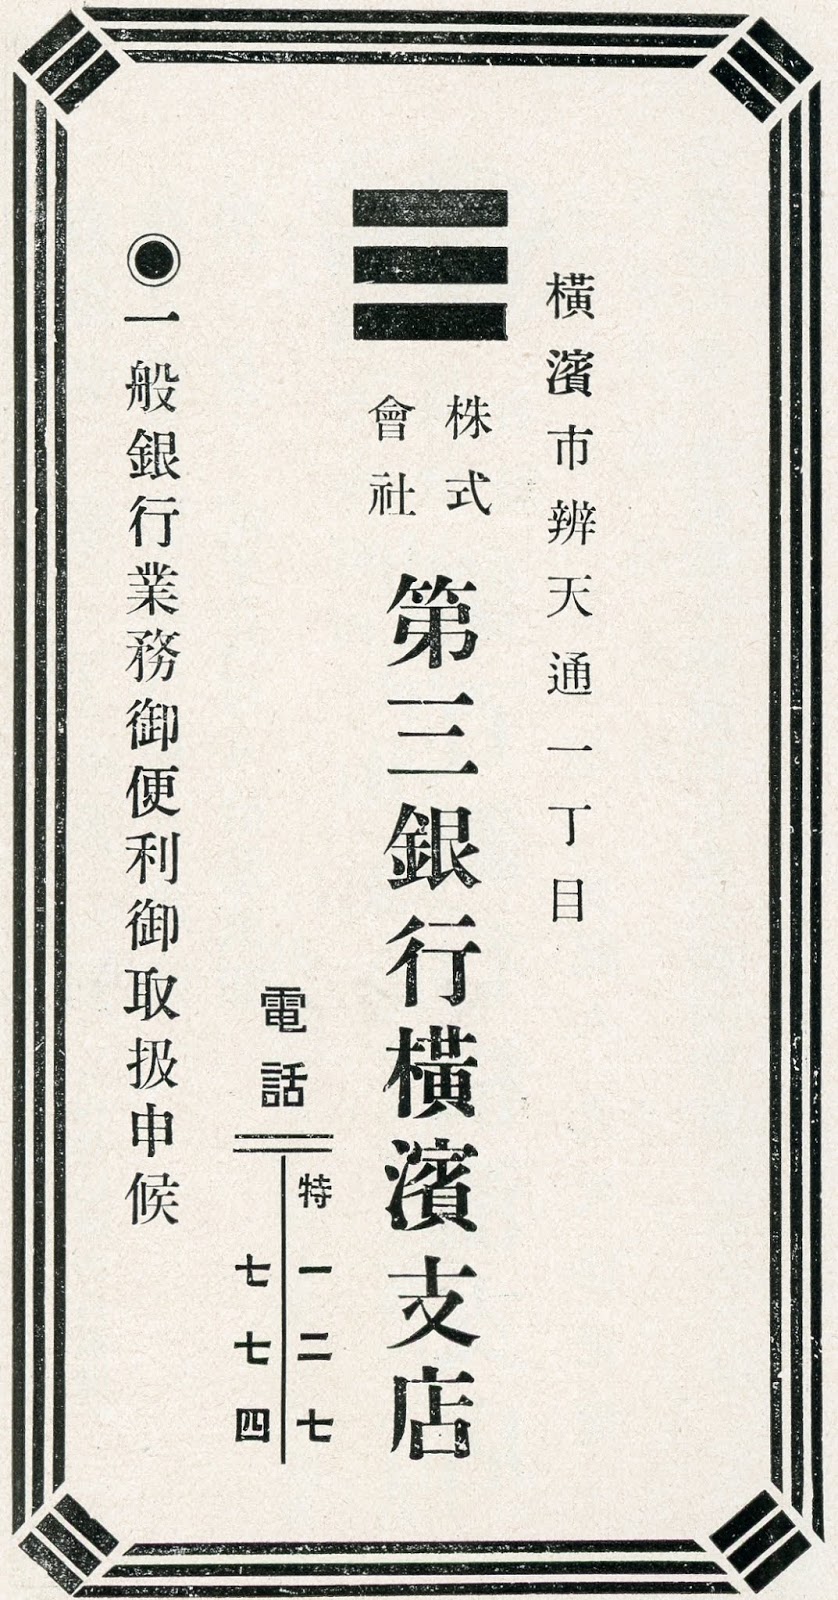 橫濱市辨天通一丁目
株式
會社
第三銀行橫濱支店
電話
特一二七
七七四
◉一般銀行業務御便利御取扱申候